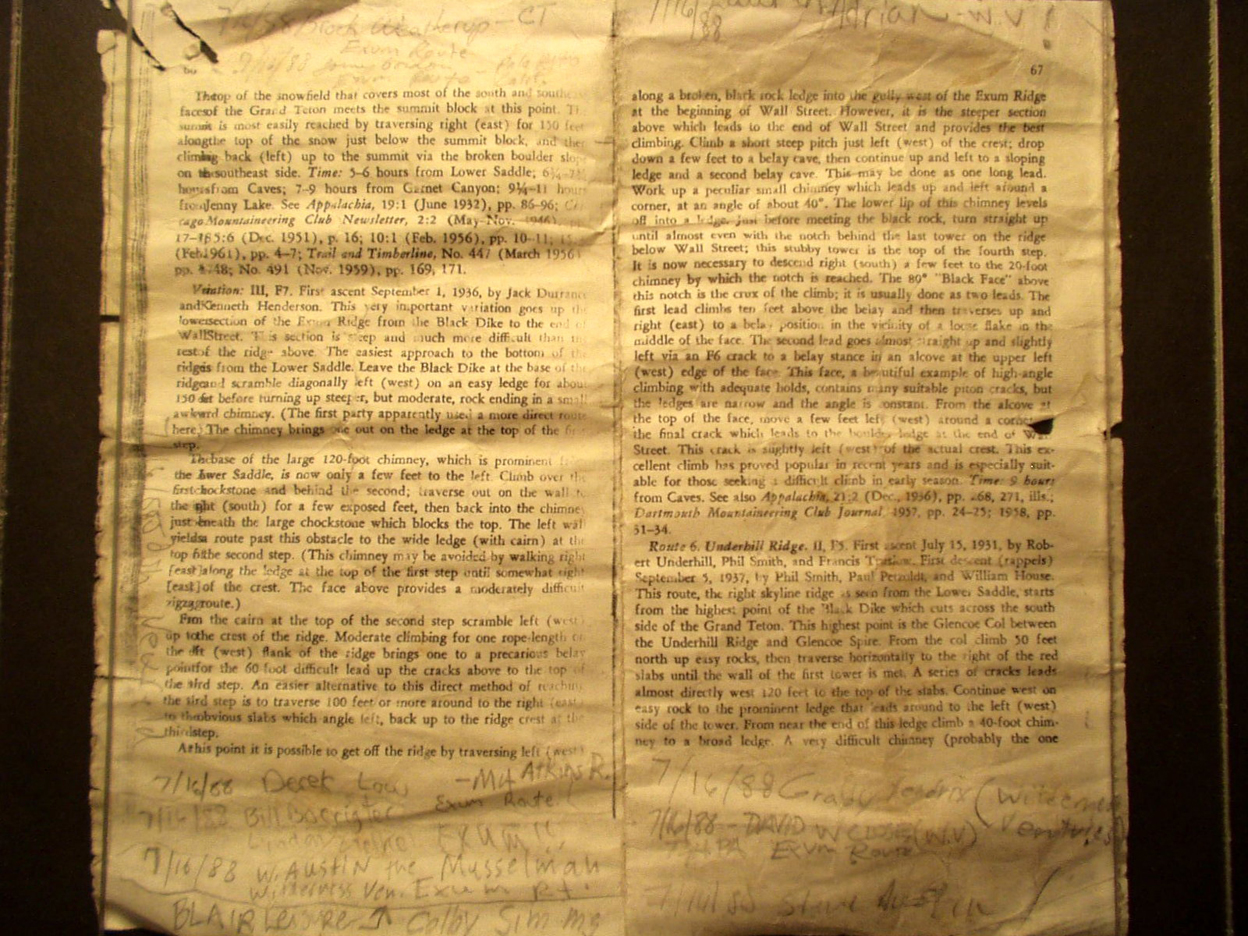 7/16/88 Brock Weatherup - CT
Exum Route
9/16/83
Exum Route
The top of the snowfield that covers most of the south and
faces of the Grand Teton meets the summit block at this point.
summit is most easily reached by traversing right (east) for 150 feet
along the top of the snow just below the summit block, and
climbing back (left) up to the summit via the broken boulder
on southeast side. Time: 5-6 hours from Lower Saddle;
from Caves; 7-9 hours from Garnet Canyon; 9¼-11 hours
from Jenny Lake. See Appalachia, 19:1 (June 1932), pp. 86-96;
cago Mountaineering Club Newsletter, 2:2 (May-Nov. 1946),
5:6 (Dec. 1951), p. 16; 10:1 (Feb. 1956), pp. 10-11;
(Feb. 1961), pp. 4-7; Trail and Timberline, No. 447 (March 1956)
48; No. 491 (Nov. 1959), pp. 169, 171.
Variation: III, F7. First ascent September 1, 1936, by Jack Durrance
and Kenneth Henderson. This very important variation goes up
lower section of the Exum Ridge from the Black Dike to the end of
Wall Street. This section is steep and much more difficult than
rest of the ridge above. The easiest approach to the bottom of
ridge is from the Lower Saddle. Leave the Black Dike at the base of the
ridge and scramble diagonally left (west) on an easy ledge for about
150 feet before turning up steeper, but moderate, rock ending in a small
awkward chimney. (The first party apparently used a more direct route
here.) The chimney brings one out on the ledge at the top of the
step.
The base of the large 120-foot chimney, which is prominent
the Lower Saddle, is now only a few feet to the left. Climb over the
first chockstone and behind the second; traverse out on the wall to
the right (south) for a few exposed feet, then back into the chimney
just beneath the large chockstone which blocks the top. The left wall
yields a route past this obstacle to the wide ledge (with cairn) at the
top of the second step. (This chimney may be avoided by walking right
[east] along the ledge at the top of the first step until somewhat right
[east] of the crest. The face above provides a moderately difficult
zigzag route.)
From the cairn at the top of the second step scramble left (west)
up to the crest of the ridge. Moderate climbing for one rope-length
the left (west) flank of the ridge brings one to a precarious belay
point for the 60 foot difficult lead up the cracks above to the top of
the third step. An easier alternative to this direct method of reaching
the third step is to traverse 100 feet or more around to the right (east)
to the obvious slabs which angle left, back up to the ridge crest at the
third step.
At this point it is possible to get off the ridge by traversing left (west)
7/16/88 Derek Low
Exum Route
7/16/88 Bill
EXUM!!
7/16/88 W. Austin the Musselman
Wilderness Ven. Exum Rt.
BLAIR Leisure Colby Simms
7/16/88 Adrian - W.V!
67
along a broken, black rock ledge into the gully west of the Exum Ridge
at the beginning of Wall Street. However, it is the steeper section
above which leads to the end of Wall Street and provides the best
climbing. Climb a short steep pitch just left (west) of the crest; drop
down a few feet to a belay cave, then continue up and left to a sloping
ledge and a second belay cave. This may be done as one long lead.
Work up a peculiar small chimney which leads up and left around a
corner, at an angle of about 40°. The lower lip of this chimney levels
off into a ledge, just before meeting the black rock, turn straight up
until almost even with the notch behind the last tower on the ridge
below Wall Street; this stubby tower is the top of the fourth step.
It is now necessary to descend right (south) a few feet to the 20-foot
chimney by which the notch is reached. The 80° "Black Face" above
this notch is the crux of the climb; it is usually done as two leads. The
first lead climbs ten feet above the belay and then traverses up and
right (east) to a belay position in the vicinity of a loose flake in the
middle of the face. The second lead goes almost straight up and slightly
left via an F6 crack to a belay stance in an alcove at the upper left
(west) edge of the face This face, a beautiful example of high-angle
climbing with adequate holds, contains many suitable piton cracks, but
the ledges are narrow and the angle is constant. From the alcove at
the top of the face, move a few feet left (west) around a corner
the final crack which leads to the boulder ledge at the end of Wall
Street. This crack is slightly left (west) of the actual crest. This ex-
cellent climb has proved popular in recent years and is especially suit-
able for those seeking a difficult climb in early season. Time: 9 hours
from Caves. See also Appalachia, 21:2 (Dec., 1936), pp. 268, 271, ills.;
Dartmouth Mountaineering Club Journal, 1957, pp. 24-25; 1958, pp.
31-34.
Route 6. Underhill Ridge. II, F5. First ascent July 15, 1931, by Rob-
ert Underhill, Phil Smith, and Francis Truslow. First descent (rappels)
September 5, 1937, by Phil Smith, Paul Petzoldt, and William House.
This route, the right skyline ridge as seen from the Lower Saddle, starts
from the highest point of the Black Dike which cuts across the south
side of the Grand Teton. This highest point is the Glencoe Col between
the Underhill Ridge and Glencoe Spire. From the col climb 50 feet
north up easy rocks, then traverse horizontally to the right of the red
slabs until the wall of the first tower is met. A series of cracks leads
almost directly west 120 feet to the top of the slabs. Continue west on
easy rock to the prominent ledge that leads around to the left (west)
side of the tower. From near the end of this ledge climb a 40-foot chim-
ney to a broad ledge. A very difficult chimney (probably the one
7/16/88 Grady (Wilderness
7/16/88 - DAVID (W.V) Ventures)
Exum Route
7/16/88 Steve Austin